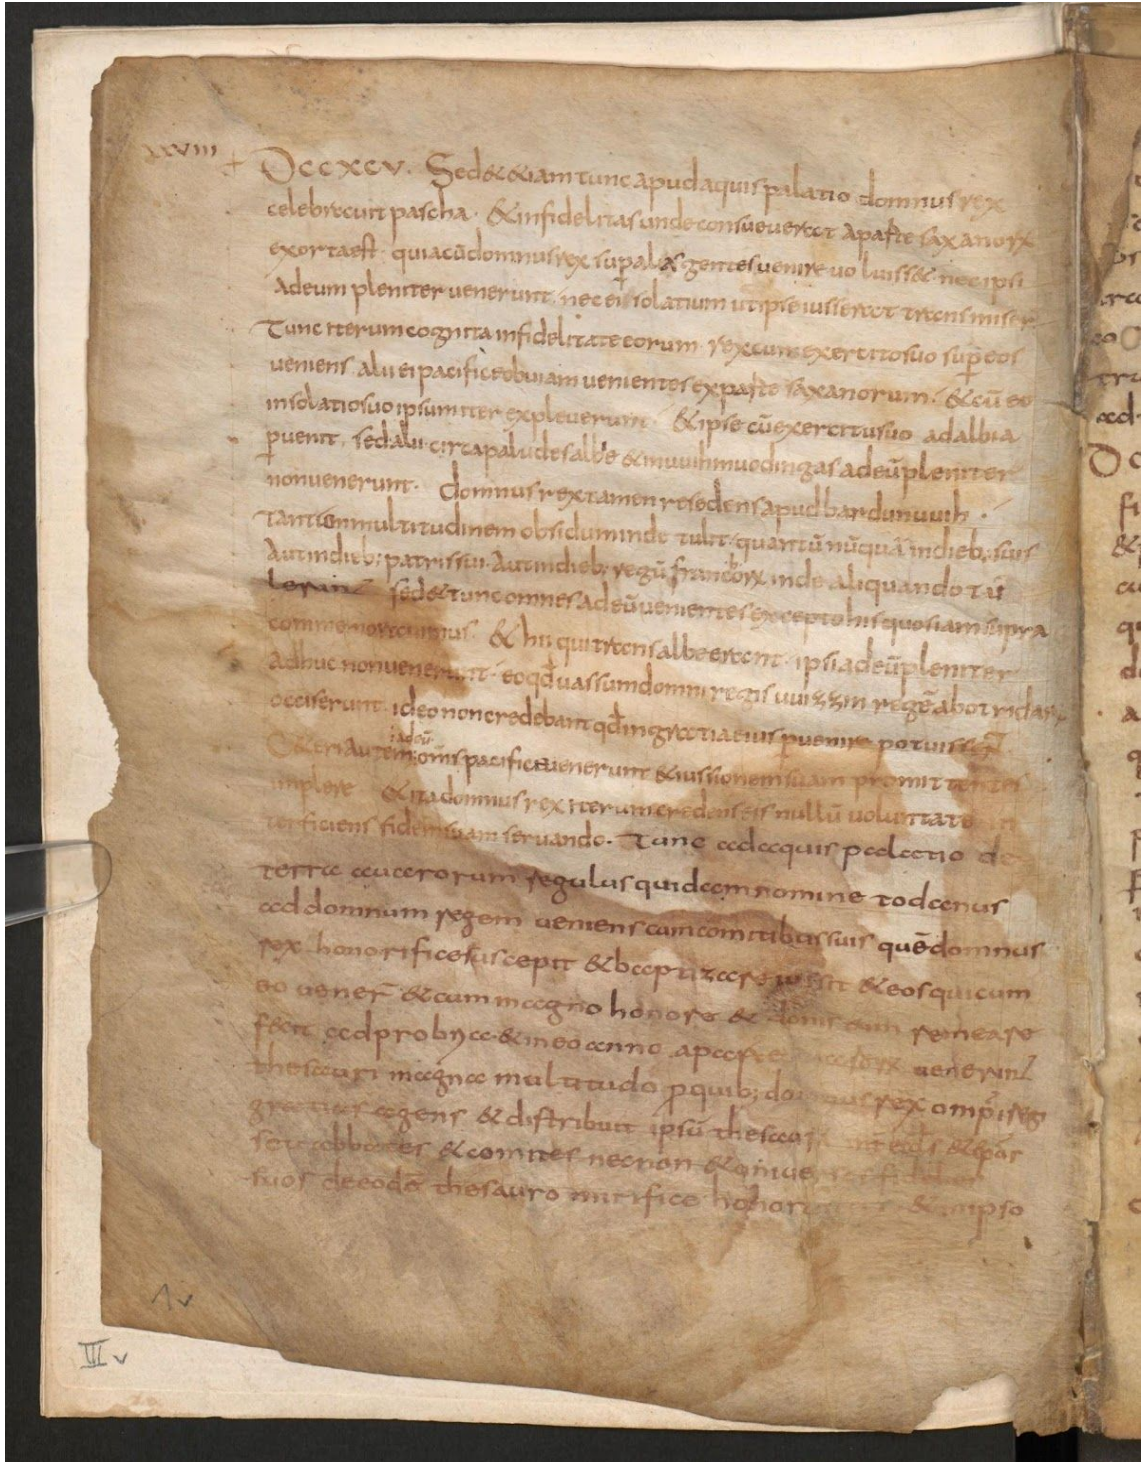 xxviii + Dccxcv. Sed & &iam tunc apud aquis palatio domnus rex
celebravit pascha. & infidelitas unde consueverat aparte saxanorū
exorta est. quia cū domnus rex sup alias gentes venire voluiss& nec ipsi
ad eum pleniter venerunt. nec ei solatium ut ipse iusserat transmiser
Tunc iterum cognita infidelitate eorum. rex cum exercitu suo sup eos
veniens. alii ei pacifice obviam venientes ex parte saxanorum. & cū eo
in solatio suo ipsum iter expleverunt. & ipse cū exercitu suo ad albia
pvenit. sed alii circa paludes albie & in uuihmuodingas ad eū pleniter
non venerunt. domnus rex tamen resedens apud bardunuuih.
tantam multitudinem obsidum inde tulit. quantū nūquā in dieb; suis
aut in dieb; patris sui. aut in dieb; regū francorū inde aliquando tu
lerunt. sed & tunc omnes ad eū venientes excepto his quos iam supra
commemoravimus. & hii qui trans albe erant. ipsi ad eū pleniter
adhuc non venerunt. eo qđ vassum domni regis uuizzin regē abotridar
occiserunt. ideo non credebant qđ in gratia eius pvenire potuissent
C&eri autem ad eū oms pacifice venerunt & iussionem suam promittentes
implere & ita domnus rex iterum credens eis nullū voluntate in
terficiens fidem suam servando. Tunc ad aquis palatio de
terra avarorum regulus quidam nomine todanus
ad domnum regem veniens cum comitibus suis quē domnus
rex honorifice suscepit & baptizare iussit & eos qui cum
eo vener & cum magno honore & donis eum remeare
fecit ad propria & in eo anno aparte avarorū venerunt
thesauri magna multitudo p quib; domnus rex omp̄i reg
gratias agens & distribuit ipsū thesaurū inter ecl̄s & ep̄os
seu abbates & comites necnon & universos fideles
suos de eodē thesauro mirifice honoravit & in ipso
1v
III v